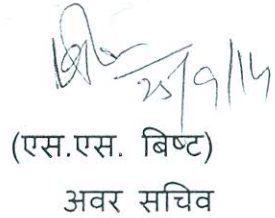 25/9/14
(एस.एस. बिष्ट)
अवर सचिव